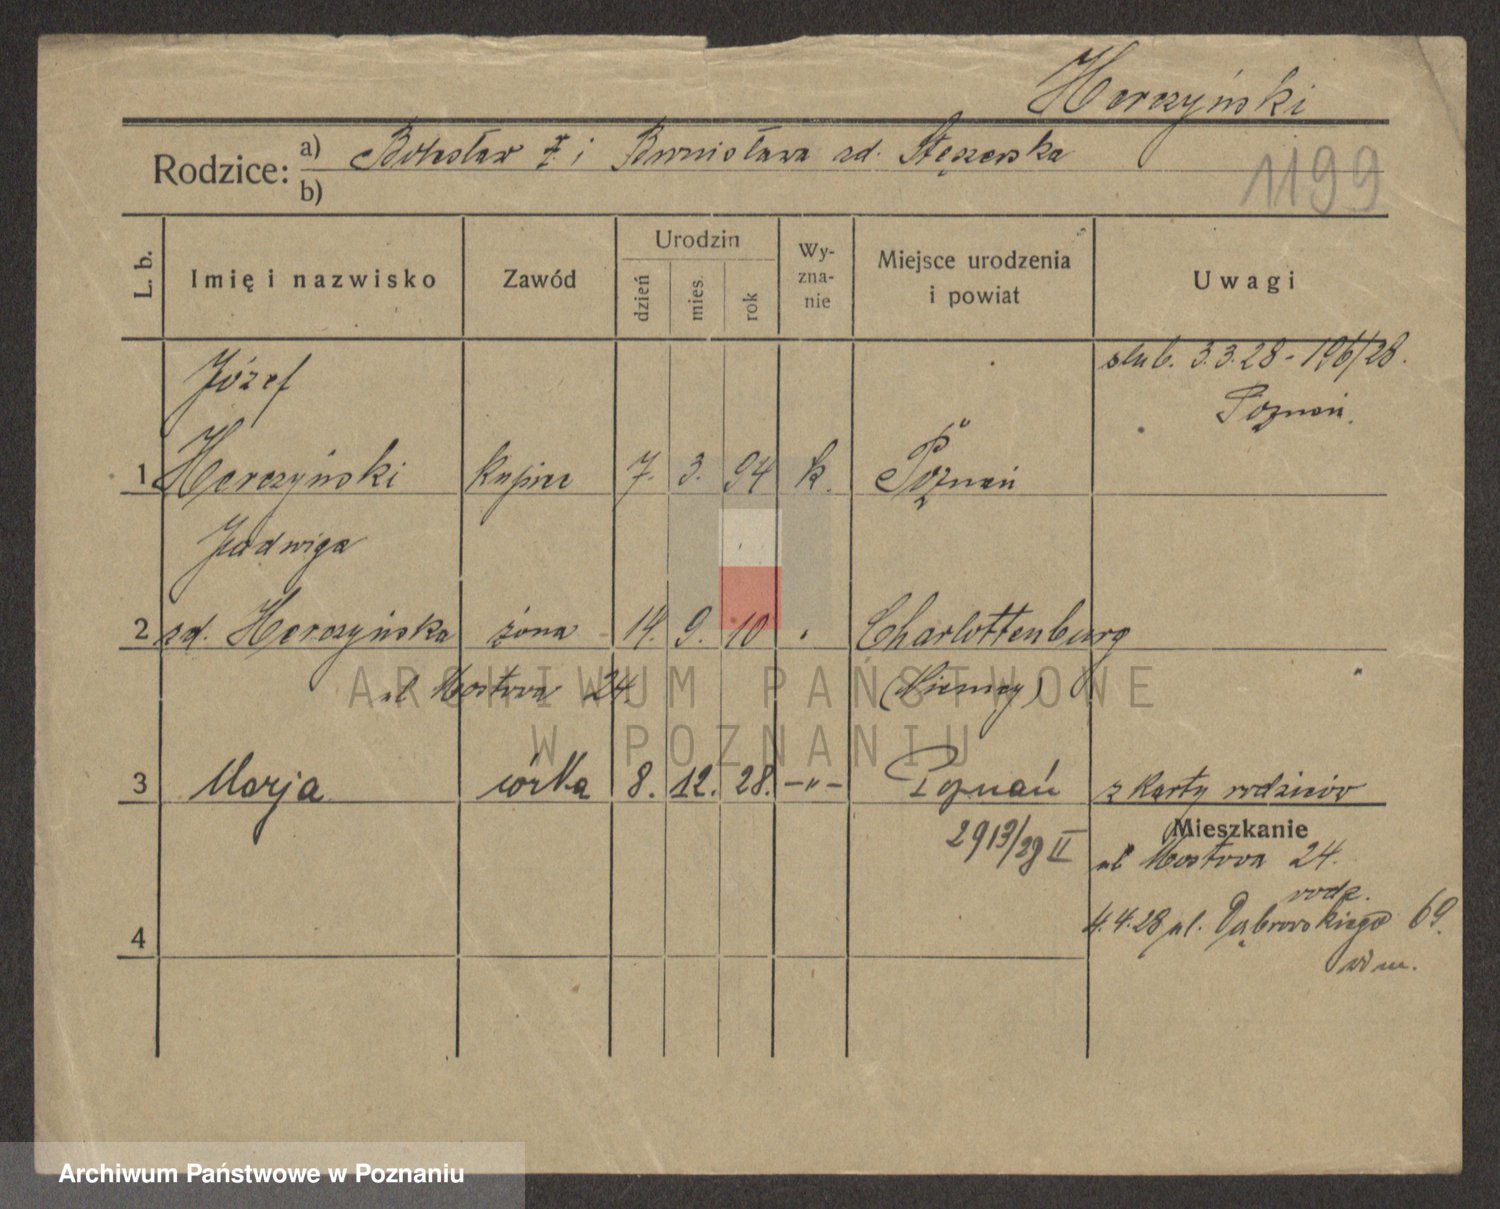 Herczyński
Rodzice: a) Bolesław i Bronisława zd. Stęszewska
b)
1199
L. b.
Imię i nazwisko
Zawód
Urodzin
dzień
mies.
rok
Wy-
zna-
nie
Miejsce urodzenia
i powiat
Uwagi
Józef
ślub. 3.3.28 - 196/28.
Poznań.
1 Herczyński kupiec 7. 3. 94 k. Poznań
Jadwiga
2 zd. Herczyńska żona 14. 9. 10 Charlottenburg
ul Mostowa 24. (Niemcy)
3 Marja córka 8. 12. 28. -"- Poznań z karty rodziców
2913/28 II
Mieszkanie
ul Mostowa 24.
rodz.
4
4.4.28 ul. Dąbrowskiego 69.
ARCHIWUM PAŃSTWOWE
W POZNANIU
Archiwum Państwowe w Poznaniu